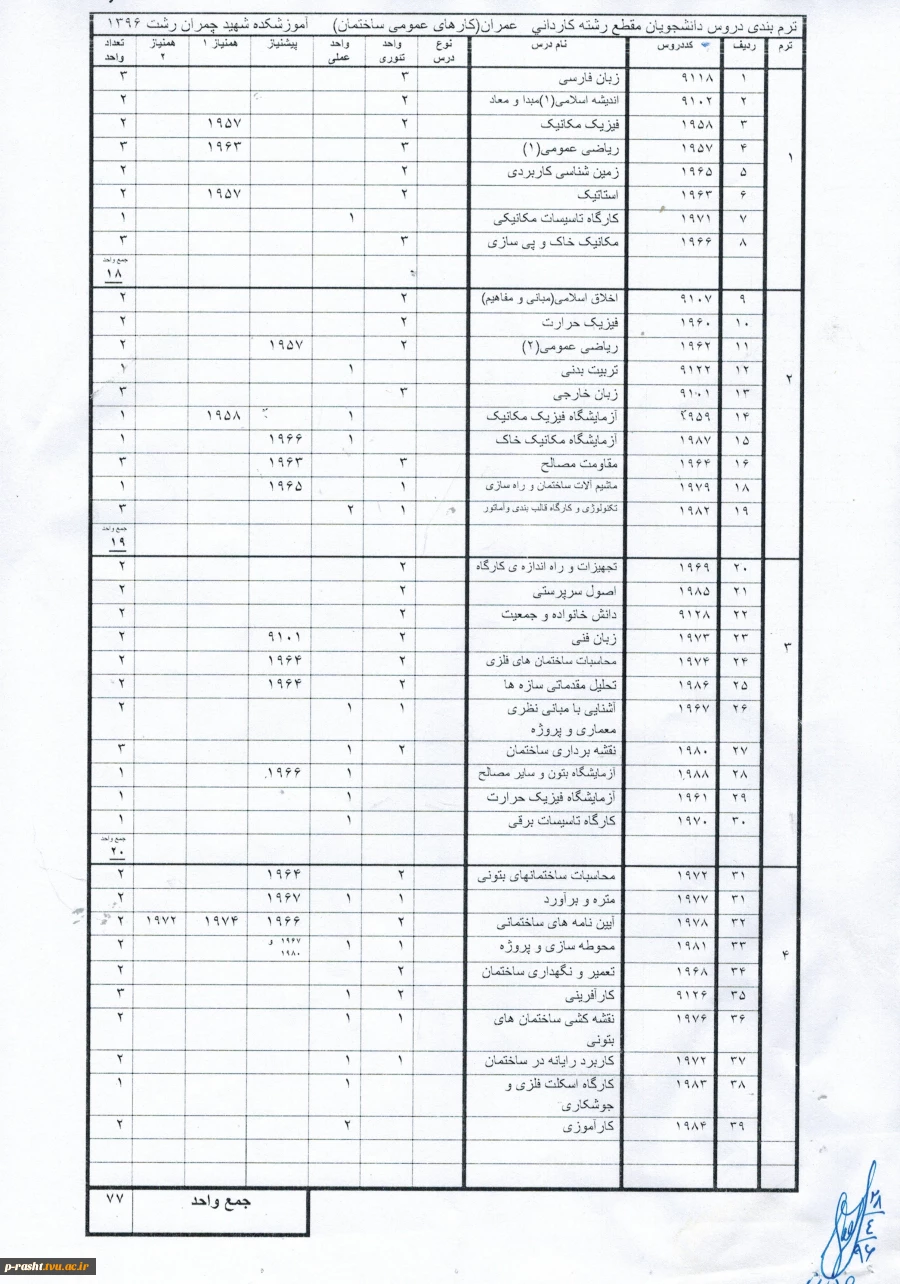 ترم بندی دروس دانشجویان مقطع رشته کاردانی عمران(کارهای عمومی ساختمان) آموزشکده شهید چمران رشت ۱۳۹۶
ترم ردیف کددروس نام درس نوع درس واحد تئوری واحد عملی پیشنیاز همنیاز ۱ همنیاز ۲ تعداد واحد
۱
۱ ۹۱۱۸ زبان فارسی ۳ ۳
۲ ۹۱۰۲ اندیشه اسلامی(۱)مبدا و معاد ۲ ۲
۳ ۱۹۵۸ فیزیک مکانیک ۲ ۱۹۵۷ ۲
۴ ۱۹۵۷ ریاضی عمومی(۱) ۳ ۱۹۶۳ ۳
۵ ۱۹۶۵ زمین شناسی کاربردی ۲ ۲
۶ ۱۹۶۳ استاتیک ۲ ۱۹۵۷ ۲
۷ ۱۹۷۱ کارگاه تاسیسات مکانیکی ۱ ۱
۸ ۱۹۶۶ مکانیک خاک و پی سازی ۳ ۳
جمع واحد
۱۸
۲
۹ ۹۱۰۷ اخلاق اسلامی(مبانی و مفاهیم) ۲ ۲
۱۰ ۱۹۶۰ فیزیک حرارت ۲ ۲
۱۱ ۱۹۶۲ ریاضی عمومی(۲) ۲ ۱۹۵۷ ۲
۱۲ ۹۱۲۲ تربیت بدنی ۱ ۱
۱۳ ۹۱۰۱ زبان خارجی ۳ ۳
۱۴ ۹۵۹ آزمایشگاه فیزیک مکانیک ۱ ۱۹۵۸ ۱
۱۵ ۱۹۸۷ آزمایشگاه مکانیک خاک ۱ ۱۹۶۶ ۱
۱۶ ۱۹۶۴ مقاومت مصالح ۳ ۱۹۶۳ ۳
۱۸ ۱۹۷۹ ماشیم آلات ساختمان و راه سازی ۱ ۱۹۶۵ ۱
۱۹ ۱۹۸۲ تکنولوژی و کارگاه قالب بندی وآماتور ۱ ۲ ۳
جمع واحد
۱۹
۳
۲۰ ۱۹۶۹ تجهیزات و راه اندازه ی کارگاه ۲ ۲
۲۱ ۱۹۸۵ اصول سرپرستی ۲ ۲
۲۲ ۹۱۲۸ دانش خانواده و جمعیت ۲ ۲
۲۳ ۱۹۷۳ زبان فنی ۲ ۹۱۰۱ ۲
۲۴ ۱۹۷۴ محاسبات ساختمان های فلزی ۲ ۱۹۶۴ ۲
۲۵ ۱۹۸۶ تحلیل مقدماتی سازه ها ۲ ۱۹۶۴ ۲
۲۶ ۱۹۶۷ آشنایی با مبانی نظری ۱ ۱ ۲
معماری و پروژه
۲۷ ۱۹۸۰ نقشه برداری ساختمان ۲ ۱ ۳
۲۸ ۱۹۸۸ آزمایشگاه بتون و سایر مصالح ۱ ۱۹۶۶ ۱
۲۹ ۱۹۶۱ آزمایشگاه فیزیک حرارت ۱ ۱
۳۰ ۱۹۷۰ کارگاه تاسیسات برقی ۱ ۱
جمع واحد
۲۰
۴
۳۱ ۱۹۷۲ محاسبات ساختمانهای بتونی ۲ ۱۹۶۴ ۲
۳۱ ۱۹۷۷ متره و برآورد ۱ ۱ ۱۹۶۷ ۲
۳۲ ۱۹۷۸ آیین نامه های ساختمانی ۲ ۱۹۶۶ ۱۹۷۴ ۱۹۷۲ ۲
۳۳ ۱۹۸۱ محوطه سازی و پروژه ۱ ۱ ۱۹۶۷ و ۱۹۸۰ ۲
۳۴ ۱۹۶۸ تعمیر و نگهداری ساختمان ۲ ۲
۳۵ ۹۱۲۶ کارآفرینی ۲ ۱ ۳
۳۶ ۱۹۷۶ نقشه کشی ساختمان های ۱ ۱ ۲
بتونی
۳۷ ۱۹۷۲ کاربرد رایانه در ساختمان ۱ ۱ ۲
۳۸ ۱۹۸۳ کارگاه اسکلت فلزی و ۱ ۱
جوشکاری
۳۹ ۱۹۸۴ کارآموزی ۲ ۲
جمع واحد ۷۷
۲۸
۴
۹۶
p-rasht.tvu.ac.ir